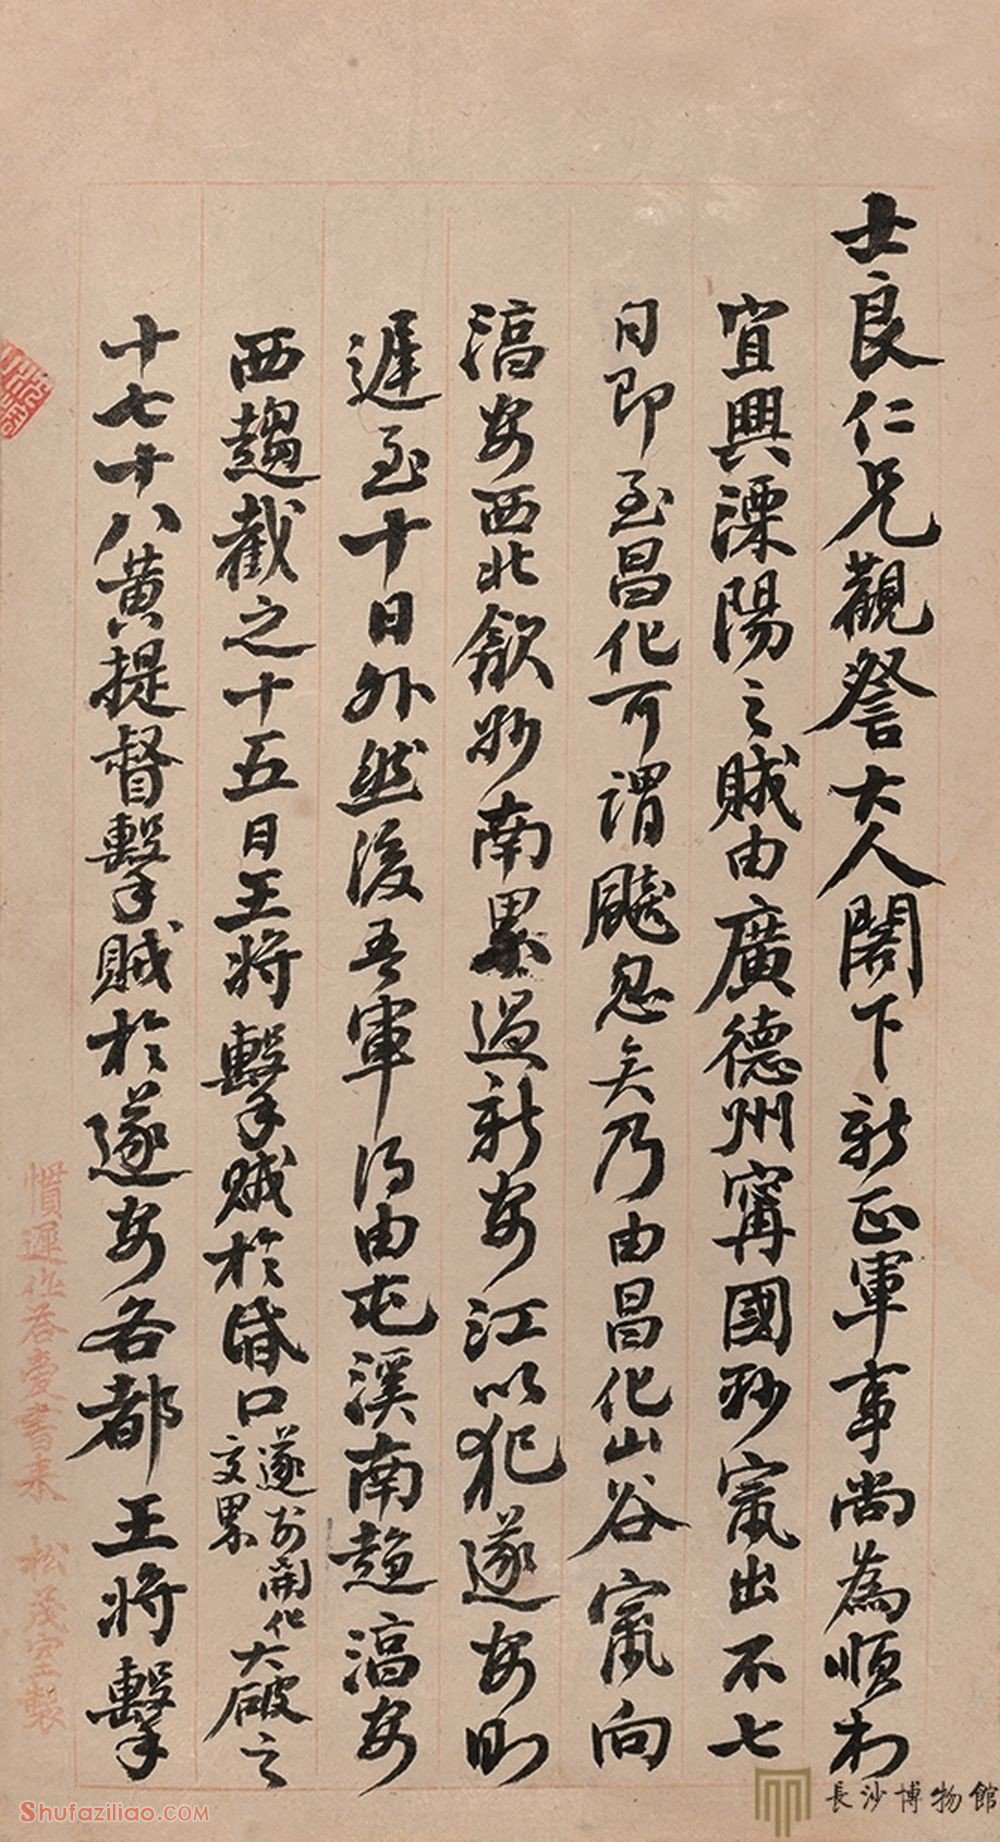 士良仁兄觀詧大人閣下新正軍事尚為順利
宜興溧陽之賊由廣德州寗國外竄出不七
日即至昌化可謂飈忽矣乃由昌化山谷竄向
淳安西北歙州南界過新安江以犯遂安則
遲至十日外然後吾軍得由屯溪南趨淳安
西趨截之十五日王將擊賊於昏口遂安開化交界大破之
十七十八黃提督擊賊於遂安各都王將擊
慣遲作答愛書來 松茂室製
長沙博物館
Shufaziliao.COM